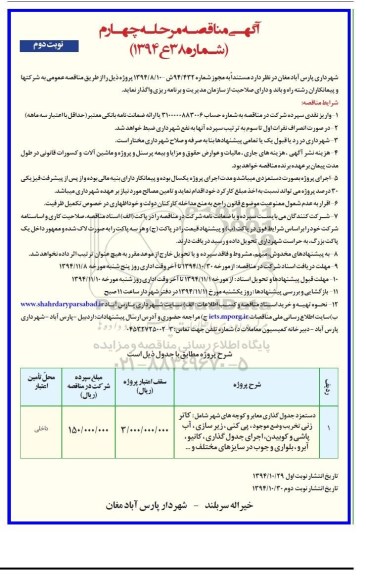 آگهی مناقصه مرحله چهارم
(شماره ۳۸/ع/۱۳۹۴)
نوبت دوم
شهرداری پارس آباد مغان در نظر دارد مستنداً به مجوز شماره ۹۴/۴۳۲/ش ۱۳۹۴/۸/۱۰ پروژه ذیل را از طریق مناقصه عمومی به شرکتها
و پیمانکاران رشته راه و باند و دارای صلاحیت از سازمان مدیریت و برنامه ریزی واگذار نماید.
شرایط مناقصه:
۱- واریز نقدی سپرده شرکت در مناقصه به شماره حساب ۳۱۰۰۰۰۰۸۸۳۰۰۶ یا ارائه ضمانت نامه بانکی معتبر (حداقل با اعتبار سه ماهه)
۲- در صورت انصراف نفرات اول تا سوم به ترتیب سپرده آنها به نفع شهرداری ضبط خواهد شد.
۳- شهرداری در رد یا قبول یک یا تمامی پیشنهادها بنا به صرفه و صلاح شهرداری مختار است.
۴- هزینه نشر آگهی، هزینه های جاری، مالیات و عوارض حقوق و مزایا و بیمه پرسنل و پروژه و ماشین آلات و کسورات قانونی در طول
مدت پیمان بر عهده برنده مناقصه خواهد بود.
۵- اجرای پروژه بصورت دستمزدی میباشد و مدت اجرای پروژه یکسال بوده و پیمانکار دارای بنیه مالی بوده و از پس از پیشرفت فیزیکی
۳۰ درصد پروژه می تواند نسبت به اخذ مبلغ کارکرد خود اقدام نماید و تامین مصالح مورد نیاز بر عهده شهرداری میباشد.
۶- افراد به عدم شمول ممنوعیت موضوع قانون راجع به منع مداخله کارکنان دولت و خوداظهاری در خصوص تکمیل ظرفیت.
۷- شرکت کنندگان می بایست سپرده و یا ضمانت نامه شرکت در مناقصه را در پاکت (الف) اسناد مناقصه، صلاحیت کاری و اساسنامه
شرکت خود را بر اساس شرایط فوق در پاکت (ب) و پیشنهاد قیمت را در پاکت (ج) و هر سه پاکت را به صورت لاک شده و ممهور داخل یک
پاکت بزرگ، به حراست شهرداری تحویل داده و رسید دریافت دارند.
۸- به پیشنهادهای مخدوش، مبهم، مشروط و فاقد سپرده و یا تحویل خارج از موعد مقرر به هیچ عنوان ترتیب اثر داده نخواهد شد.
۹- مهلت دریافت اسناد شرکت در مناقصه: از مورخه ۱۳۹۴/۱۰/۳۰ تا آخر وقت اداری روز پنج شنبه مورخه ۱۳۹۴/۱۱/۸
۱۰- مهلت قبول پیشنهادها و تحویل اسناد: از مورخه ۱۳۹۴/۱۱/۱۰ تا آخر وقت اداری روز شنبه مورخه ۱۳۹۴/۱۱/۱۰
۱۱- بازگشایی و بررسی پیشنهادها: روز یکشنبه مورخ ۱۳۹۴/۱۱/۱۱ در دفتر شهردار ساعت ۱۱ صبح
۱۲- نحوه تهیه و خرید اسناد مناقصه و کسب اطلاعات: الف) سایت شهرداری پارس آباد www.shahrdaryparsabad.ir
ب) سایت اطلاع رسانی ملی مناقصات iets.mporg.ir ج) مراجعه حضوری و آدرس ارسال پیشنهادات: اردبیل - پارس آباد - شهرداری
پارس آباد - دبیرخانه کمیسیون معاملات د) شماره تلفن جهت تماس:
شرح پروژه مطابق با جدول ذیل است
ردیف
شرح پروژه
سقف اعتبار پروژه (ریال)
مبلغ سپرده شرکت در مناقصه (ریال)
محل تأمین اعتبار
۱
دستمزد جدول گذاری معابر و کوچه های شهر شامل: کاتر
زنی تخریب وضع موجود، پی کنی، زیر سازی، آب
پاشی و کوبیدن، اجرای جدول گذاری، کانیو،
آبرو، بلواری و جوب در سایزهای مختلف و ...
۳/۰۰۰/۰۰۰/۰۰۰
۱۵۰/۰۰۰/۰۰۰
داخلی
تاریخ انتشار نوبت اول ۱۳۹۴/۱۰/۲۹
تاریخ انتشار نوبت دوم ۱۳۹۴/۱۰/۳۰
خیراله سربلند - شهردار پارس آباد مغان
پایگاه اطلاع رسانی مناقصه و مزایده
۰۲۱-۸۸۳۴۹۶۷۰-۵